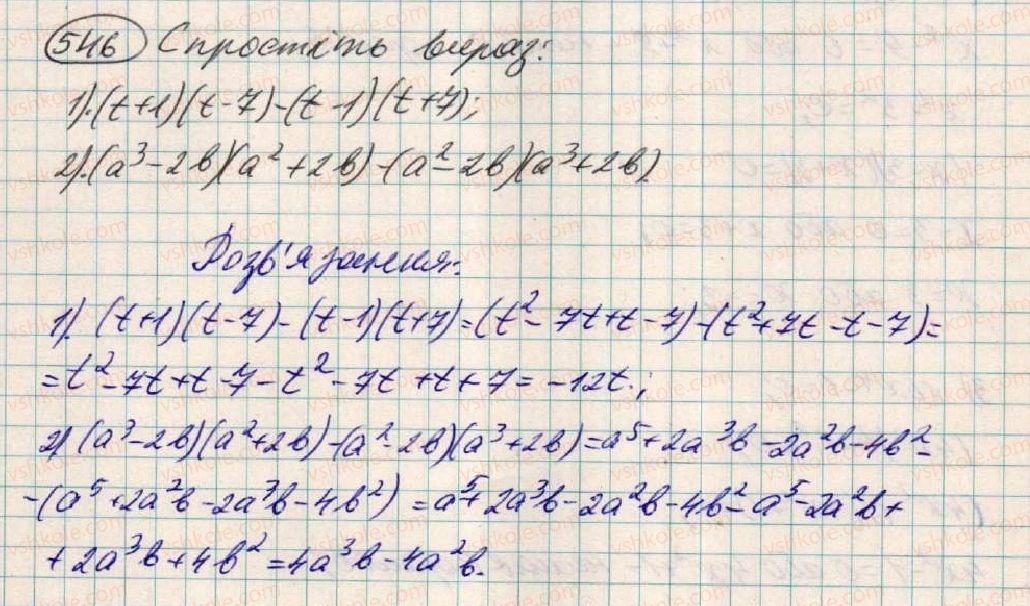 546 Спростіть вираз:
1). (t+1)(t-7)-(t-1)(t+7);
2). (a³-2b)(a²+2b)-(a²-2b)(a³+2b)
Розв'язання:
1). (t+1)(t-7)-(t-1)(t+7)=(t²-7t+t-7)-(t²+7t-t-7)=
=t²-7t+t-7-t²-7t+t+7=-12t.;
2) (a³-2b)(a²+2b)-(a²-2b)(a³+2b)=a⁵+2a³b-2a²b-4b²-
-(a⁵+2a²b-2a³b-4b²)=a⁵+2a³b-2a²b-4b²-a⁵-2a²b+
+2a³b+4b²=4a³b-4a²b.